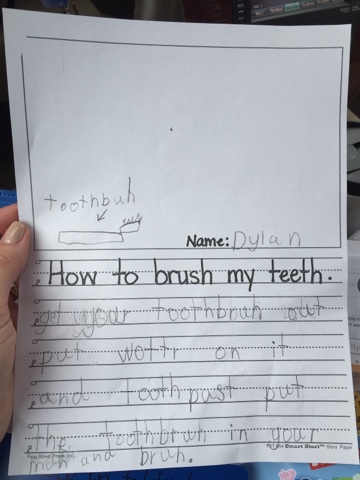 toothbuh
Name: Dylan
How to brush my teeth.
get your toothbruh out
put wottr on it
and tooth past put
the toothbruh in your
muh and bruh.